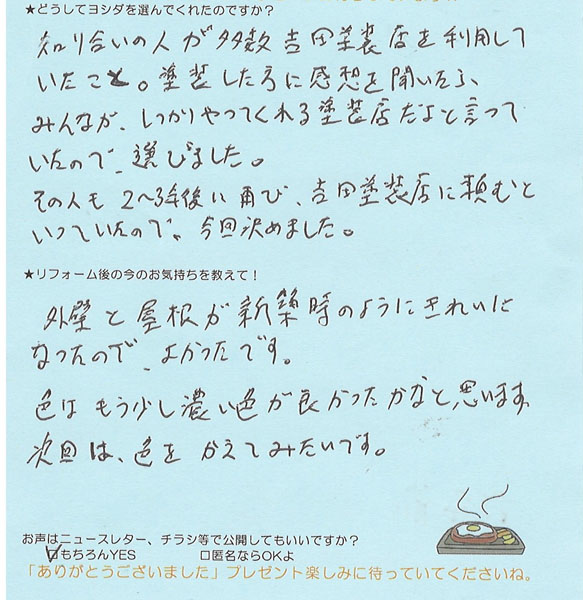 ★どうしてヨシダを選んでくれたのですか?
知り合いの人が多数吉田塗装店を利用して
いたこと。塗装した方に感想を聞いたら、
みんなが、しっかりやってくれる塗装店だよと言って
いたので、選びました。
その人も2〜3年後に再び、吉田塗装店に頼むと
いっていたので、今回決めました。
★リフォーム後の今のお気持ちを教えて!
外壁と屋根が新築時のようにきれいに
なったので、よかったです。
色はもう少し濃い色が良かったかなと思います。
次回は、色をかえてみたいです。
お声はニュースレター、チラシ等で公開してもいいですか?
☑もちろんYES □匿名ならOKよ
「ありがとうございました」プレゼント楽しみに待っていてくださいね。